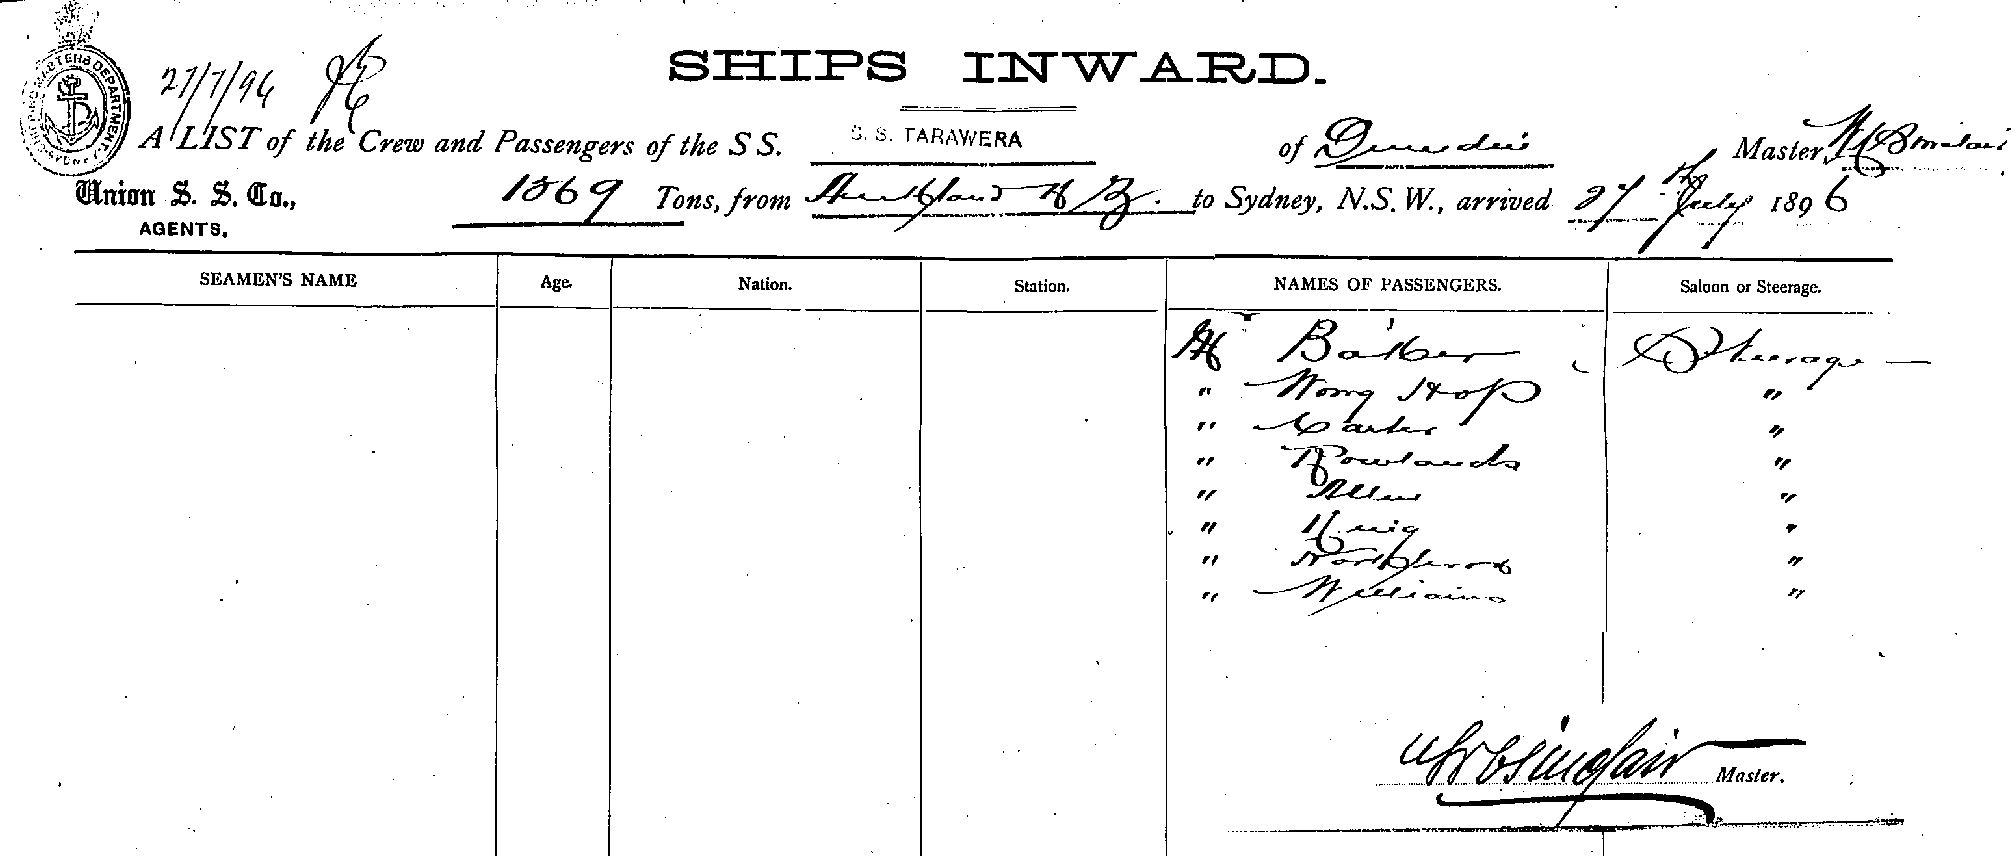 SHIPS INWARD.
27/7/96
A LIST of the Crew and Passengers of the S S. S. S. TARAWERA of Dunedin Master, W C Sinclair
Union S. S. Co., 1269 Tons, from Auckland N Z. to Sydney, N.S.W., arrived 27th July 1896
AGENTS.
SEAMEN'S NAME Age. Nation. Station. NAMES OF PASSENGERS. Saloon or Steerage.
Mr Baker Steerage
" Wong Hop "
" Carter "
" Rowlands "
" Allen "
" King "
" "
" Williams "
Sinclair Master.